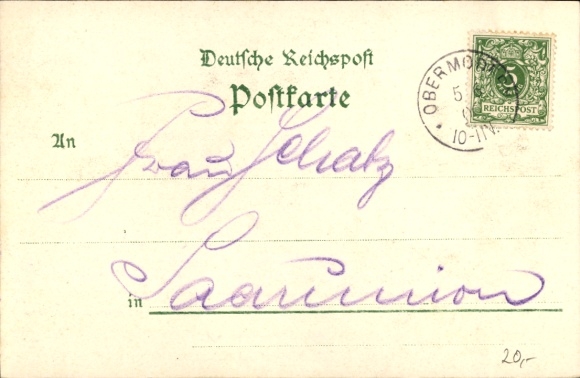 Deutsche Reichspost
Postkarte
5
REICHSPOST
5
10-11V.
An Frau Schatz
in Saarunion
20,-